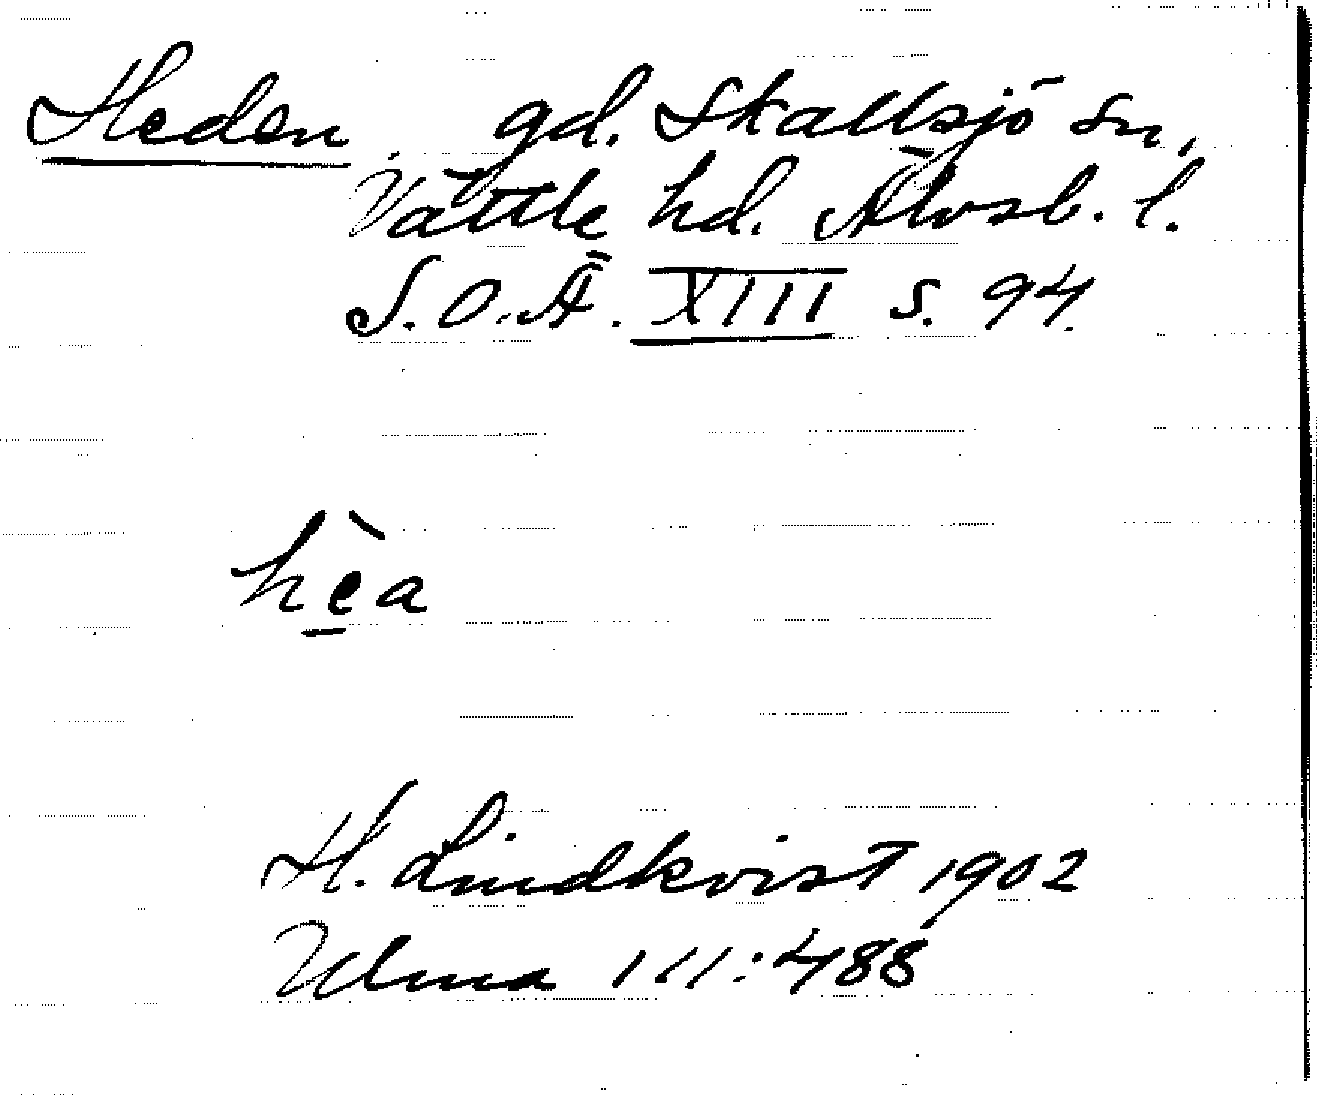 Heden gd. Skallsjö sn,
Vättle hd. Älvsb. l.
S.O.Ä. XIII s. 94.
hè̱a
H. Lindkvist 1902
Ulma 111:488